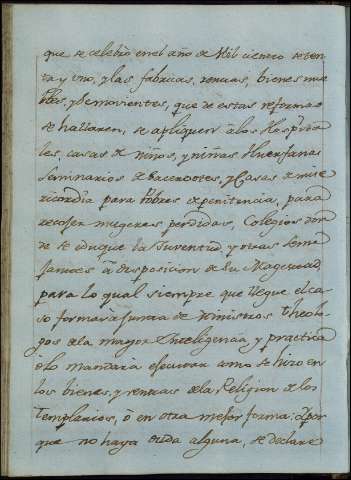 que se celebro en el año de Mil ciento seten
ta y uno, y las fabricas, rentas, bienes mue
bles, y semovientes, que de estas reformas
se hallaren, se apliquen à los Hospita
les, casas de niños, y niñas Huerfanas
seminarios de sacerdotes, y Casas de mise
ricordia para Pobres de penitencia, para
recoger mugeres perdidas, Colegios don
de se eduque la Juventud, y otras seme
jantes â disposicion de su Magestad,
para lo qual siempre que llegue el ca
so formarà Junta de Ministros Theolo
gos de la mayor Inteligencia, y practica
ò lo mandarà ejecutar como se hizo en
los bienes, y rentas de la Religion de los
Templarios, ò en otra mejor forma: Y por
que no haya duda alguna, se declare